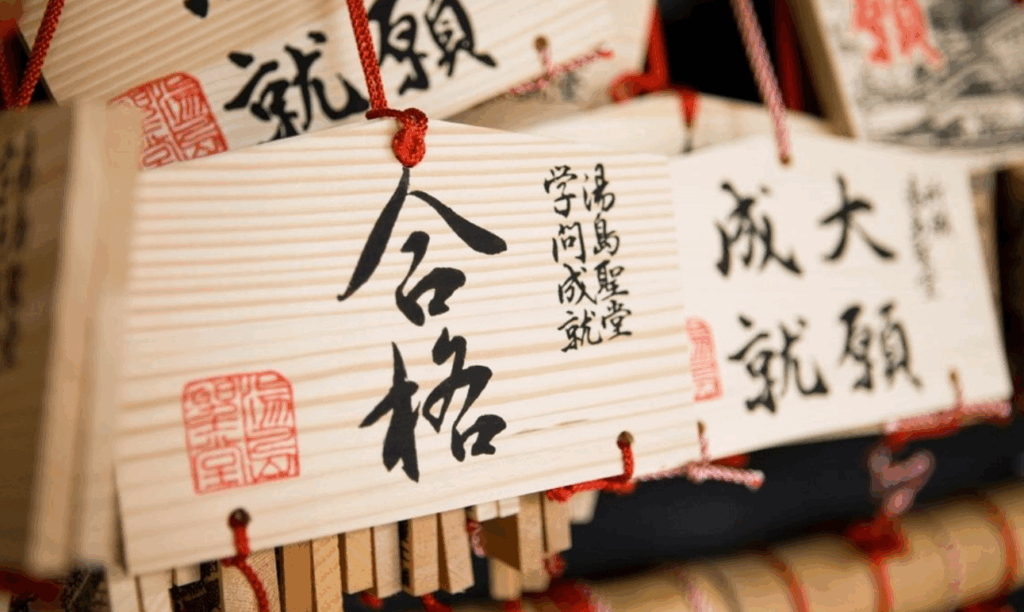 合格
湯島聖堂
学問成就
大願
成就
願
就
願